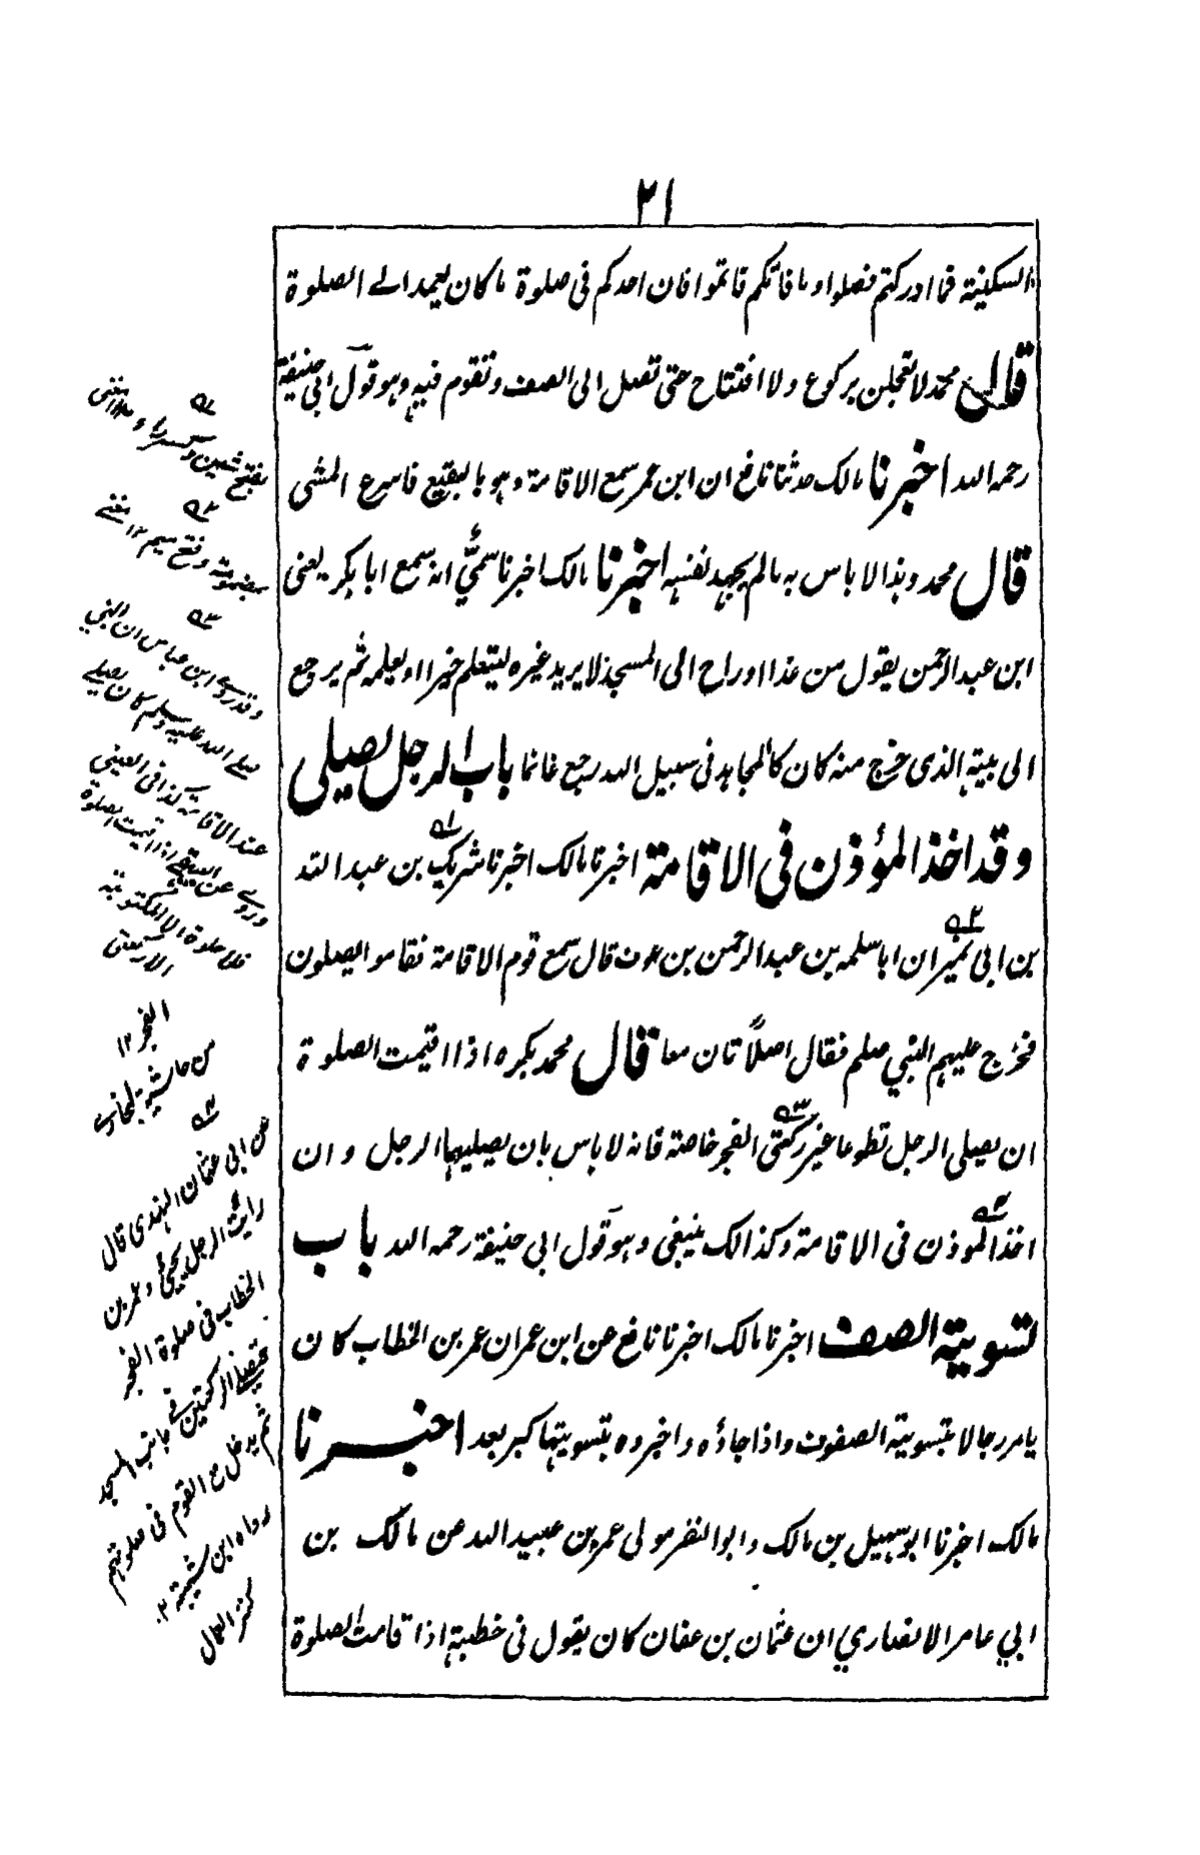 ٢١
السكينة فما ادركتم فصلوا وما فاتكم فاتموا فان احدكم فى صلوة ما كان يعمد الے الصلوة
قال محمد لا تعجلن بركوع ولا افتتاح حتى تصل الى الصف وتقوم فيه وهو قول ابى حنيفة
رحمه الله اخبرنا مالك حدثنا نافع ان ابن عمر سمع الاقامة وهو بالبقيع فاسرع المشى
قال محمد وهذا لا باس به ما لم يجهد نفسه اخبرنا مالك اخبرنا سمىٌّ انه سمع ابا بكر يعنى
ابن عبد الرحمن يقول من غدا او راح الى المسجد لا يريد غيره ليتعلم خيرا او يعلمه ثم يرجع
الى بيته الذى خرج منه كان كالمجاهد فى سبيل الله رجع غانما باب الرجل يصلى
وقد اخذ المؤذن فى الاقامة اخبرنا مالك اخبرنا شريك بن عبد الله
بن ابى نمير ان ابا سلمه بن عبد الرحمن بن عوف قال سمع قوم الاقامة فقاموا يصلون
فخرج عليهم النبي صلعم فقال اصلاًتان معا قال محمد يكره اذا اقيمت الصلوة
ان يصلى الرجل تطوعا غير ركعتى الفجر خاصة فانه لا باس بان يصليهما الرجل وان
اخذ الموذن فى الاقامة وكذالك ينبغى وهو قول ابى حنيفة رحمه الله باب
تسوية الصف اخبرنا مالك اخبرنا نافع عن ابن عمر ان عمر بن الخطاب كان
يامر رجالا بتسوية الصفوف واذا جاؤه واخبروه بتسويتها كبر بعد اخبرنا
مالك اخبرنا ابو سهيل بن مالك وابو النضر مولى عمر بن عبيد الله عن مالك بن
ابي عامر الانصاري ان عثمان بن عفان كان يقول فى خطبته اذا قامت الصلوة
بفتح شين وكسر راء
وفتح ميم ١٢
وقد روے ابن عباس ان النبي
صلے الله عليه وسلم كان يصلے
عند الاقامة كذا فى العينى
فلا صلوة الا المكتوبة
الا ركعتى
الفجر ١٢
من حاشية البخارے
عن ابى عثمان النهدى قال
رايت الرجل يجئ وعمر بن
الخطاب فى صلوة الفجر
فيصلے الركعتين فے جانب المسجد
ثم يدخل مع القوم فى صلوتهم
رواه ابن شيبة ١٢
كنز العمال